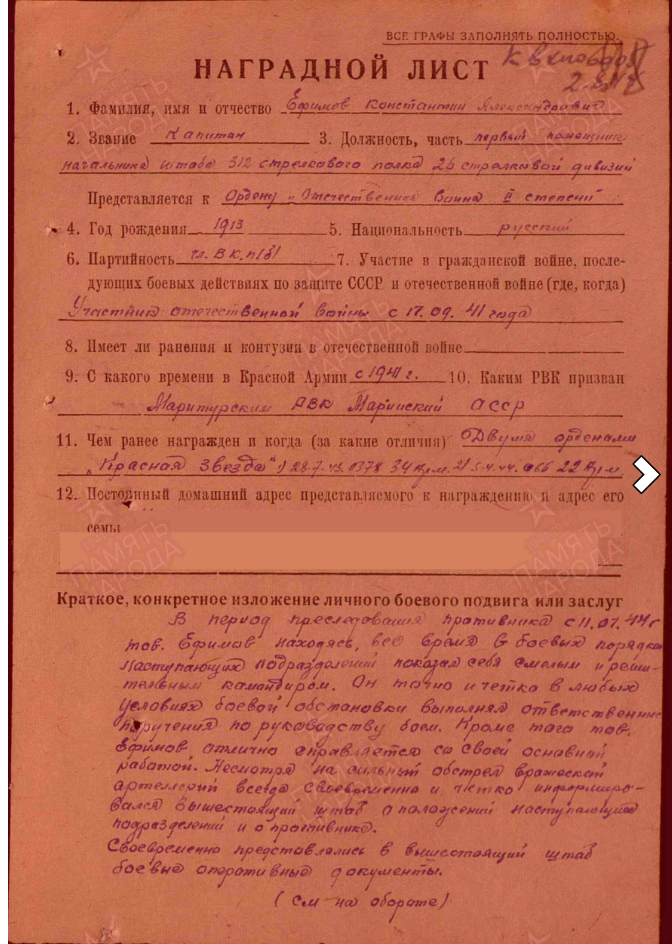 ВСЕ ГРАФЫ ЗАПОЛНЯТЬ ПОЛНОСТЬЮ.
НАГРАДНОЙ ЛИСТ
1. Фамилия, имя и отчество Ефимов Константин Александрович
2. Звание Капитан 3. Должность, часть первый помощник
начальника штаба 312 стрелкового полка 26 стрелковой дивизии
Представляется к Ордену „Отечественная Война II степени"
4. Год рождения 1913 5. Национальность русский
6. Партийность чл. ВКП(б) 7. Участие в гражданской войне, после-
дующих боевых действиях по защите СССР и отечественной войне (где, когда)
Участник отечественной войны с 17.09.41 года
8. Имеет ли ранения и контузии в отечественной войне
9. С какого времени в Красной Армии с 1941 г. 10. Каким РВК призван
Маритурским РВК Марийский АССР
11. Чем ранее награжден и когда (за какие отличия) Двумя орденами
„Красная Звезда" 1) 28.7.43. 0378 34 Арм. 2) 5.4.44. 066 22 Арм.
12. Постоянный домашний адрес представляемого к награждению и адрес его
семьи
Краткое, конкретное изложение личного боевого подвига или заслуг
В период преследования противника с 11.07.44 г
тов. Ефимов находясь, все время в боевых порядках
наступающих подразделений показал себя смелым и реши-
тельным командиром. Он точно и четко в любых
условиях боевой обстановки выполнял ответственные
поручения по руководству боем. Кроме того тов.
Ефимов отлично справляется со своей основной
работой. Несмотря на сильный обстрел вражеской
артелерий всегда своевременно и четко информиро-
вался вышестоящий штаб о положений наступающих
подразделений и о противнике.
Своевременно представлялись в вышестоящий штаб
боевые оперативные документы.
(См на обороте)
ПАМЯТЬ НАРОДА